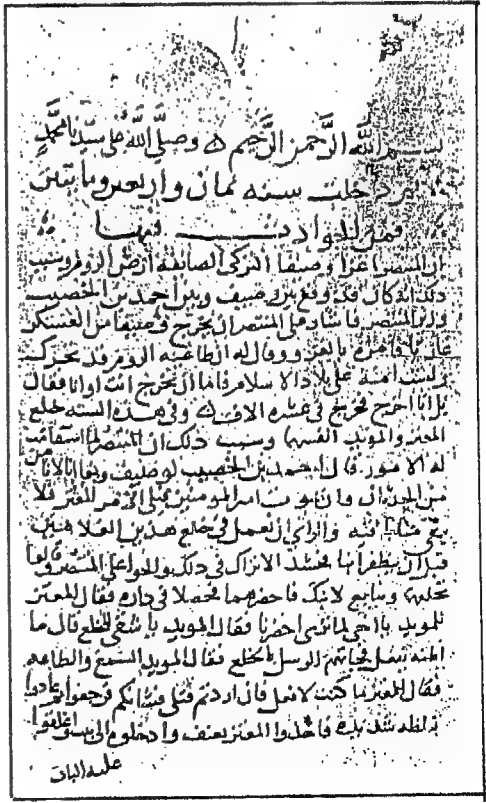 بسم الله الرحمن الرحيم ۞ وصلى الله على سيدنا محمد
ثم دخلت سنة ثمان واربعين ومايتين
فمن الحوادث فيها
ان المنتصر اغزا وصيفا التركى الصائفة ارض الروم وسبب
ذلك انه كان قد وقع بين وصيف وبين احمد بن الخصيب
وزير المنتصر فاشار على المنتصر ان يخرج وصيفا من العسكر
غازيا فامره بالغزو وقال له ان طاغيه الروم قد تحرك
ولست امنه على بلاد الاسلام فاما ان تخرج انت او انا فقال
بل انا اخرج فخرج فى عشره الاف ۞ وفى هذه السنه خلع
المعتز والمويد انفسهما وسبب ذلك ان المنتصر لما استقامت
له الامور قال احمد بن الخصيب لوصيف وبغا انا لا نامن
من الحدثان وان يموت امير المومنين فيلى الامر المعتز فلا
يبقى منا باقيه والراى ان نعمل فى خلع هذين الغلامين
قبل ان يظفرا بنا فجد الاتراك فى ذلك والحوا على المنتصر وقالوا
نخلعهما ونبايع لابنك فاحضرهما فجعلا فى دار فقال المعتز
للمويد يا اخى لم ترى احضرنا فقال المويد يا شقى للخلع قال ما
اظنه يفعل فجاتهم الرسل بالخلع فقال المويد السمع والطاعه
فقال المعتز ما كنت لافعل فان اردتم قتلى فشانكم فرجعوا ثم عادوا
بغلظه شديده فاخذوا المعتز بعنف وادخلوه الى بيت واغلقوا
عليه الباب